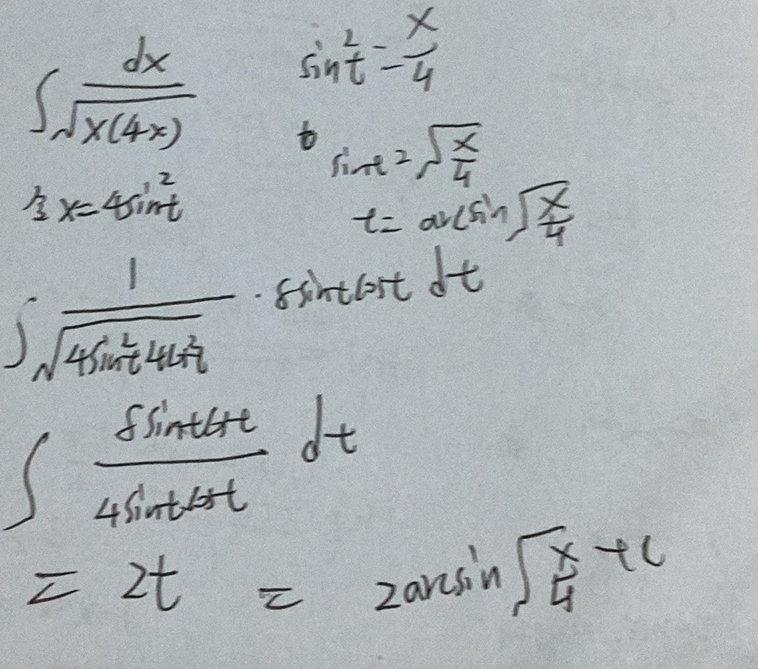 ∫ dx / √(x(4x))
令 x = 4sin²t
sin²t = x/4
sint = √(x/4)
t = arcsin √(x/4)
∫ 1 / √(4sin²t 4cos²t) · 8sintcost dt
∫ 8sintcost / 4sintcost dt
= 2t = 2arcsin √(x/4) + c